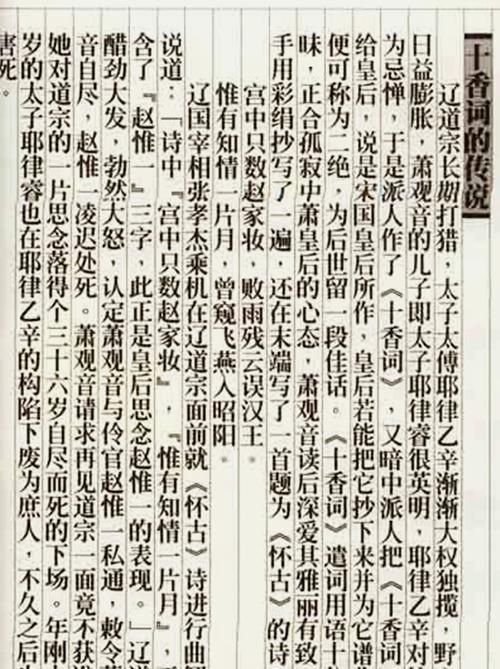 十香词的传说
辽道宗长期打猎，太子太傅耶律乙辛渐渐大权独揽，野
日益膨胀，萧观音的儿子即太子耶律睿很英明，耶律乙辛对
为忌惮，于是派人作了《十香词》，又暗中派人把《十香词
给皇后，说是宋国皇后所作，皇后若能把它抄下来并为它谱
便可称为二绝，为后世留一段佳话。《十香词》遣词用语十
昧，正合孤寂中萧皇后的心态，萧观音读后深爱其雅丽有致
手用彩绢抄写了一遍，还在末端写了一首题为《怀古》的诗
宫中只数赵家妆，败雨残云误汉王。
惟有知情一片月，曾窥飞燕入昭阳。
辽国宰相张孝杰乘机在辽道宗面前就《怀古》诗进行曲
说道：「诗中『宫中只数赵家妆』，『惟有知情一片月』，
含了『赵惟一』三字，此正是皇后思念赵惟一的表现。」辽道
醋劲大发，勃然大怒，认定萧观音与伶官赵惟一私通，敕令萧
音自尽，赵惟一凌迟处死。萧观音请求再见道宗一面竟不获准
她对道宗的一片思念落得个三十六岁自尽而死的下场。年刚
岁的太子耶律睿也在耶律乙辛的构陷下废为庶人，不久之后
害死。